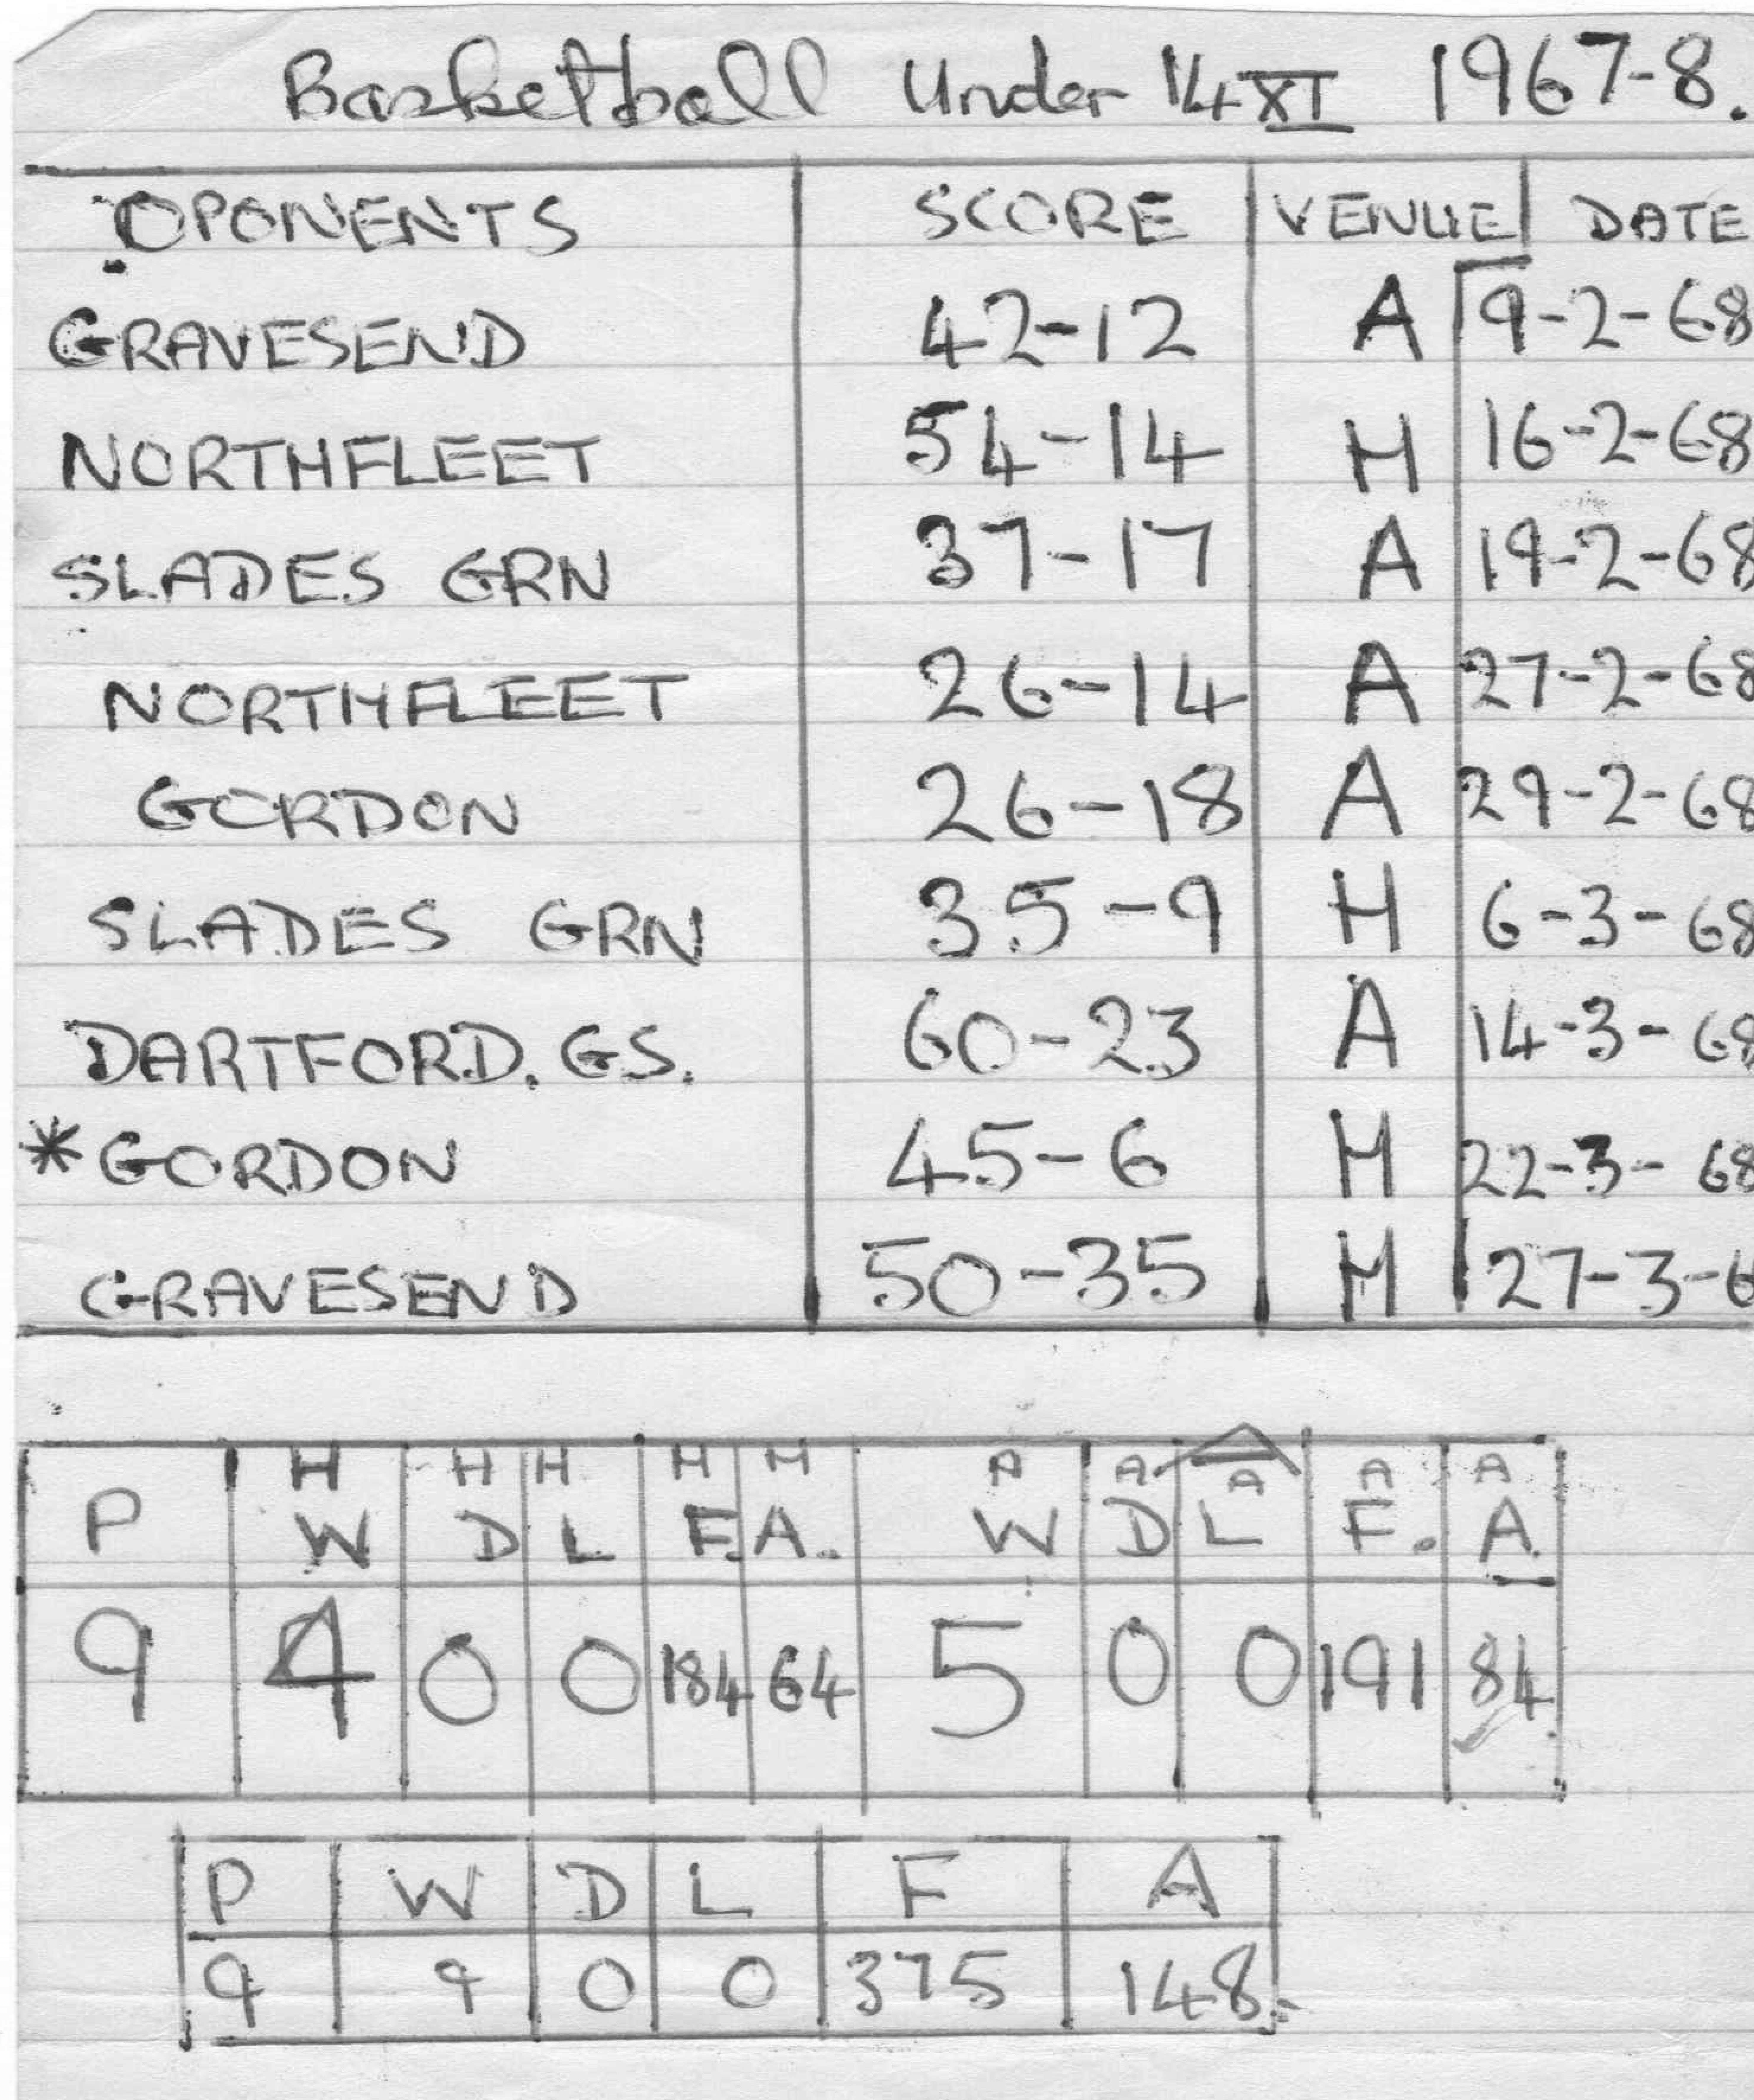 Basketball Under 14 XI 1967-8.
OPONENTS SCORE VENUE DATE
GRAVESEND 42-12 A 9-2-68
NORTHFLEET 54-14 H 16-2-68
SLADES GRN 37-17 A 19-2-68
NORTHFLEET 26-14 A 27-2-68
GORDON 26-18 A 29-2-68
SLADES GRN 35-9 H 6-3-68
DARTFORD. GS. 60-23 A 14-3-68
* GORDON 45-6 H 22-3-68
GRAVESEND 50-35 H 27-3-6
H H H H H A A A A A
P W D L F. A. W D L F. A.
9 4 0 0 184 64 5 0 0 191 84
P W D L F A
9 9 0 0 375 148.